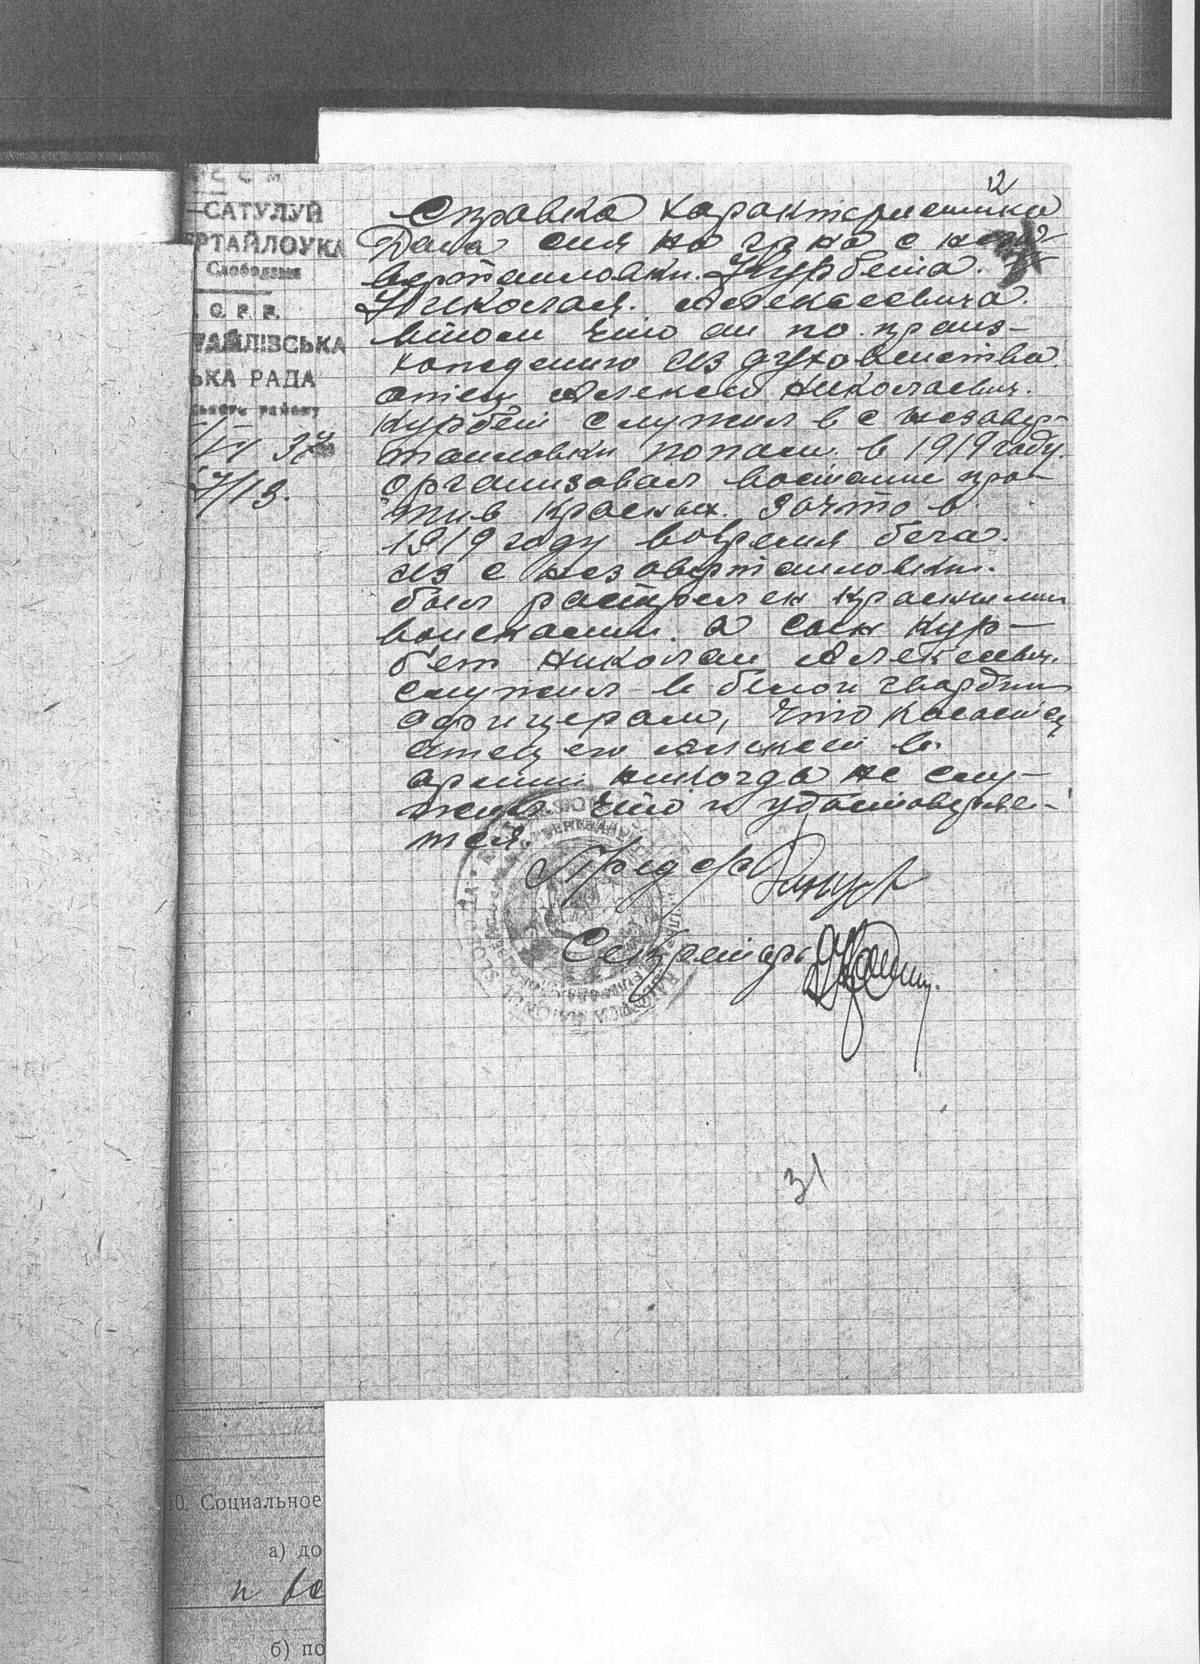 С С М
-САТУЛУЙ
РТАЙЛОУКА
Слободзея
. С. Р. Р.
ТАЙЛІВСЬКА
ЬКА РАДА
району
VI 37
7/13.
12
Справка характеристика
Дана сия на гр-на с неза-
вертаиловки. Курбета.
Николая. Алексеевича.
втом что он по проис-
хождению из духовенства
отец Алексей Николаевич.
Курбет служил в с незавер-
таиловки попом. в 1919 году.
организовал востание про-
тив Красных. зачто в
1919 году вовремя бега.
из с незавертаиловки.
был растрелен красными
воисками. а сын Кур-
бет Николаи Алексеевич.
служил в белой гвардии
офицером, что касается
отец его Алексей в
армии никогда не слу-
жил что и удостоверяе-
тся.
Пред с/р
Секретарь
31
10. Социальное
а) до
и
б) по